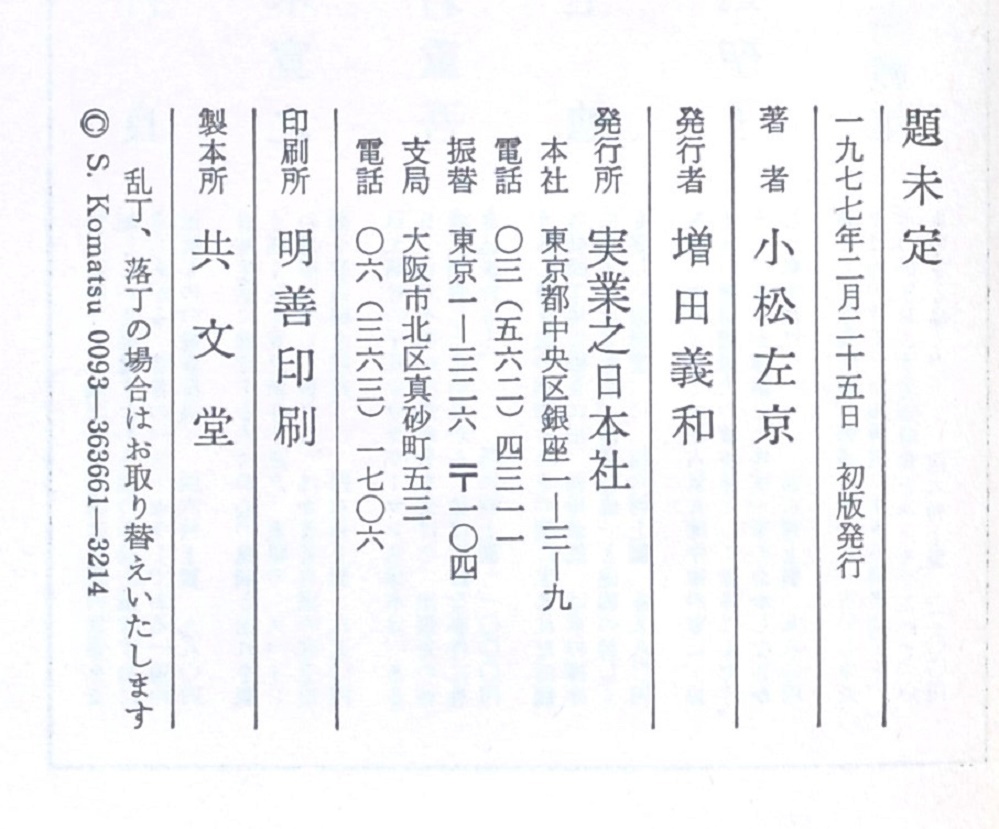 題未定
一九七七年二月二十五日　初版発行
著者　小松左京
発行者　増田義和
発行所　実業之日本社
本社　東京都中央区銀座一―三―九
電話　〇三（五六二）四三一一
振替　東京一―三二六　〒一〇四
支局　大阪市北区真砂町五三
電話　〇六（三六三）一七〇六
印刷所　明善印刷
製本所　共文堂
乱丁、落丁の場合はお取り替えいたします
© S. Komatsu 0093―363661―3214